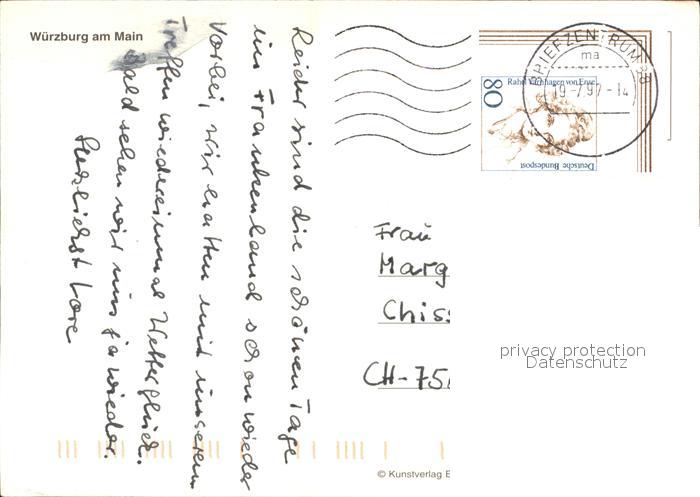 Würzburg am Main
Leider sind die schönen Tage
im Frankenland schon wieder
Vorbei, wir hatten mit unserem
Treffen wiedereinmal Wetterglück.
Bald sehen wir uns ja wieder.
Herzlichst Lore
BRIEFZENTRUM
ma
19-7.97-14
80
Rahel Varnhagen von Ense
Deutsche Bundespost
Frau
Marg
Chiss
CH-75
privacy protection
Datenschutz
© Kunstverlag E